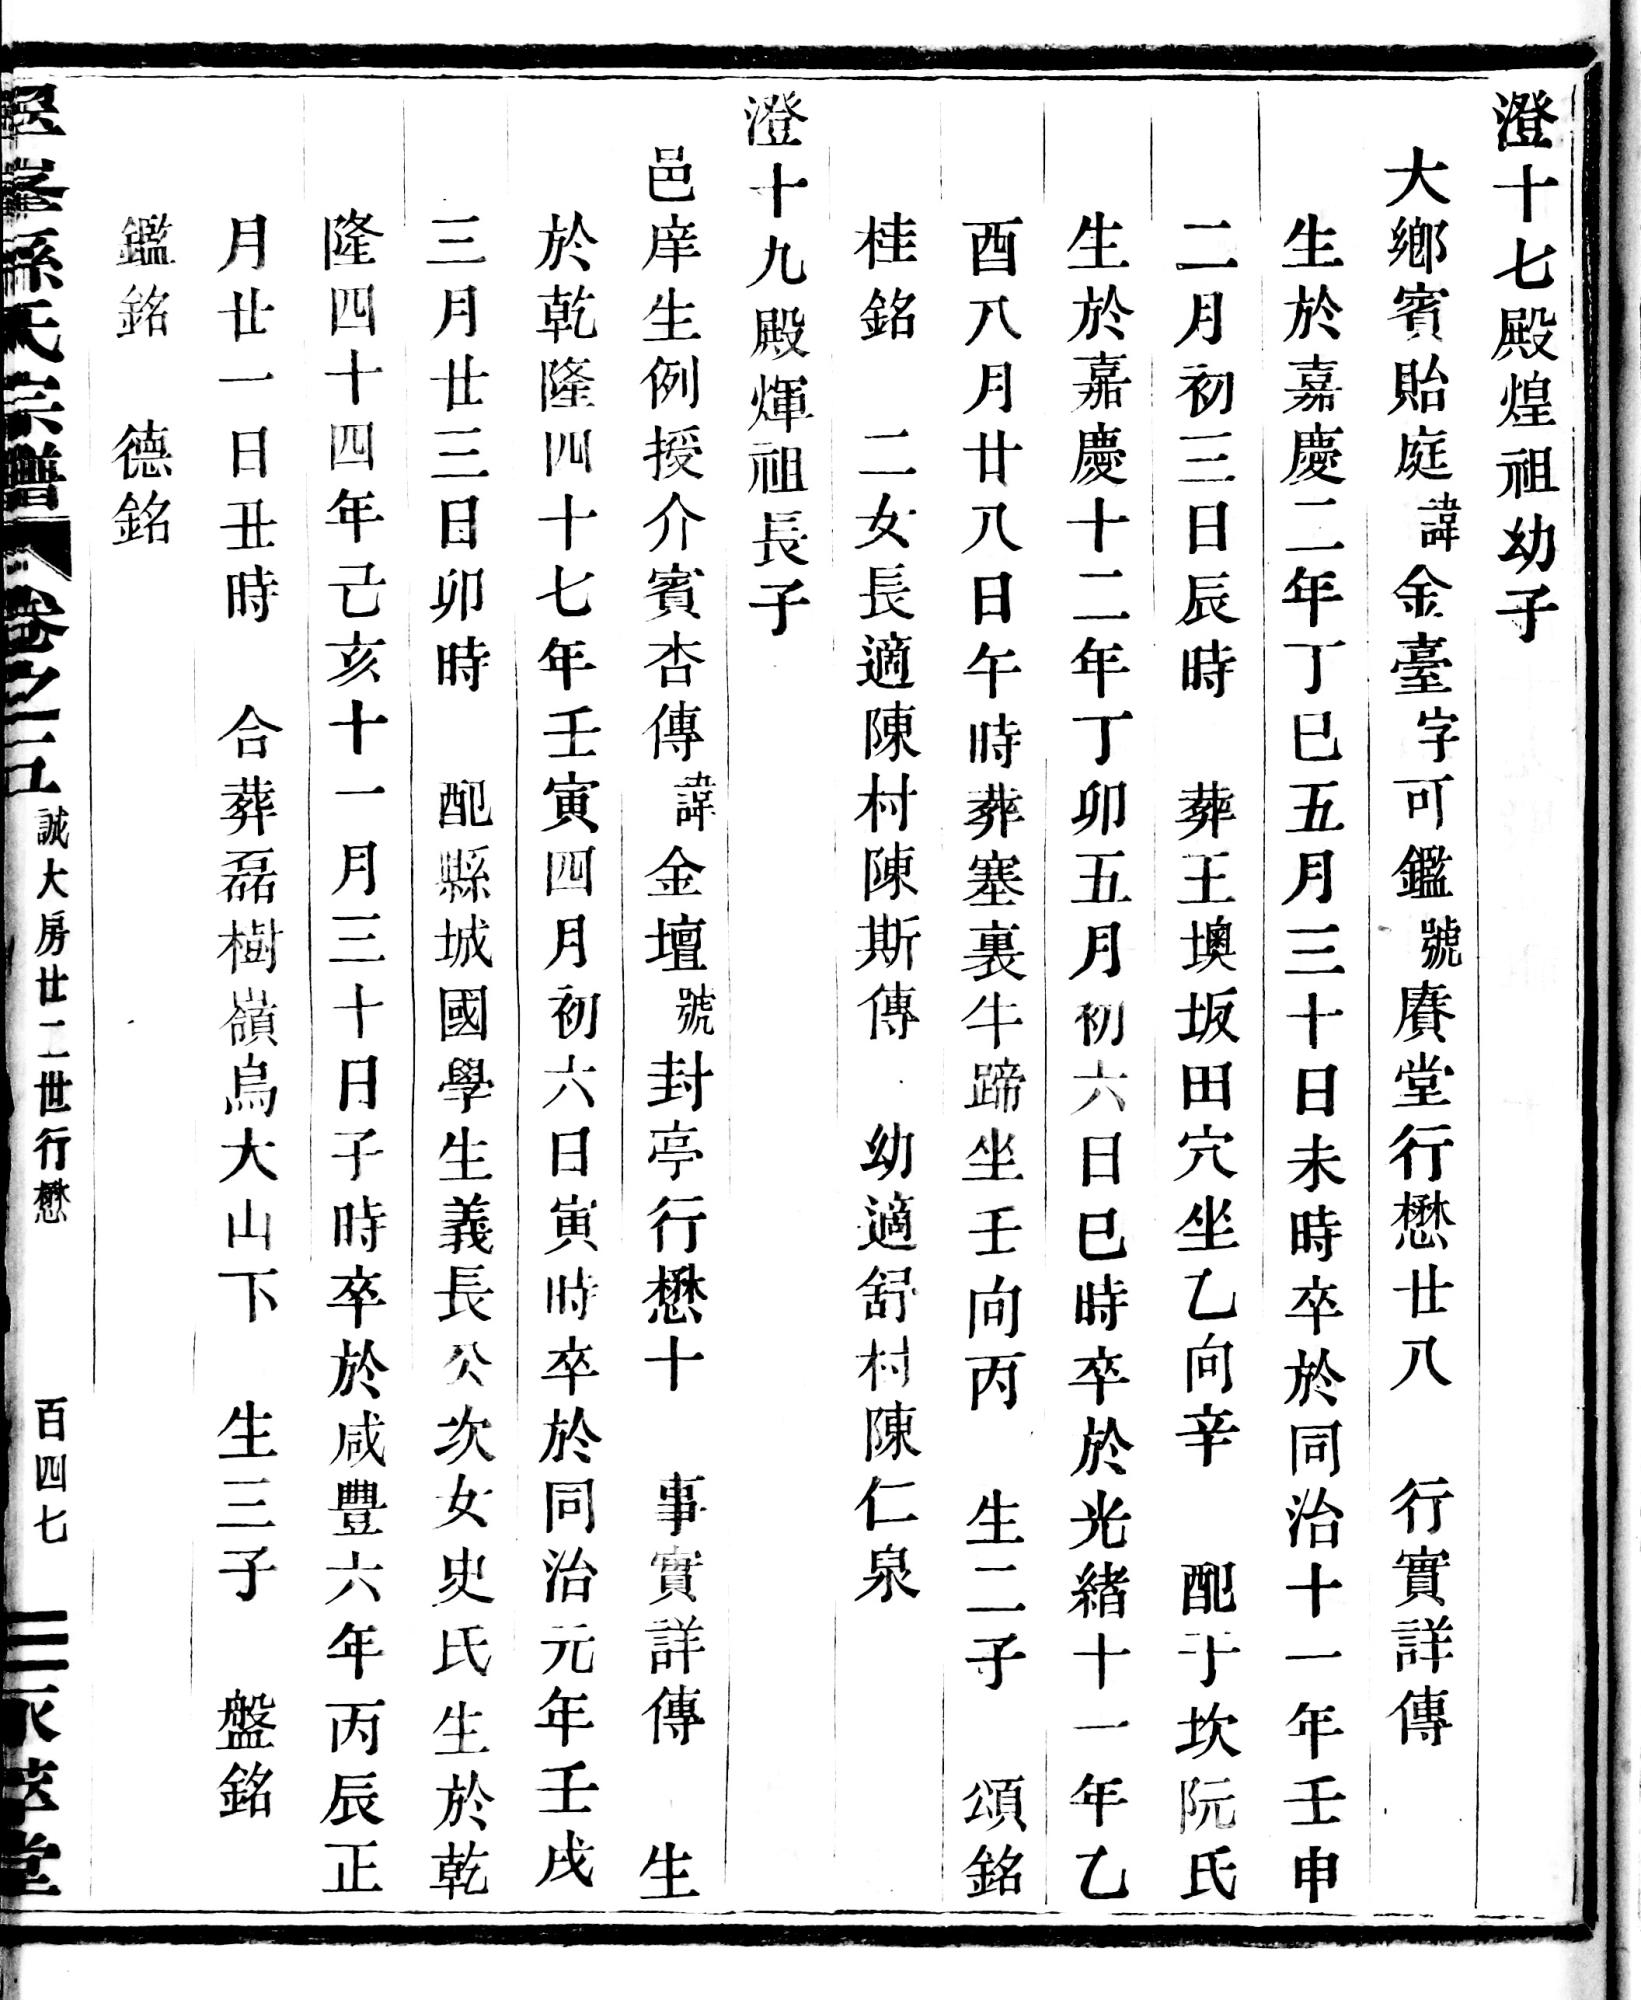 澄十七殿煌祖幼子
大鄉賓貽庭諱金臺字可鑑號賡堂行懋廿八　行實詳傳
生於嘉慶二年丁巳五月三十日未時卒於同治十一年壬申
二月初三日辰時　葬王墺坂田穴坐乙向辛　配于坎阮氏
生於嘉慶十二年丁卯五月初六日巳時卒於光緒十一年乙
酉八月廿八日午時葬塞裏牛蹄坐壬向丙　生二子　頌銘
桂銘　二女長適陳村陳斯傳　幼適舒村陳仁泉
澄十九殿煇祖長子
邑庠生例授介賓杏傳諱金壇號封亭行懋十　事實詳傳　生
於乾隆四十七年壬寅四月初六日寅時卒於同治元年壬戌
三月廿三日卯時　配縣城國學生義長公次女史氏生於乾
隆四十四年己亥十一月三十日子時卒於咸豐六年丙辰正
月廿一日丑時　合葬磊樹嶺烏大山下　生三子　盤銘
鑑銘　德銘
孫氏宗譜　卷之二　誠大房廿二世行懋　百四七　萃堂